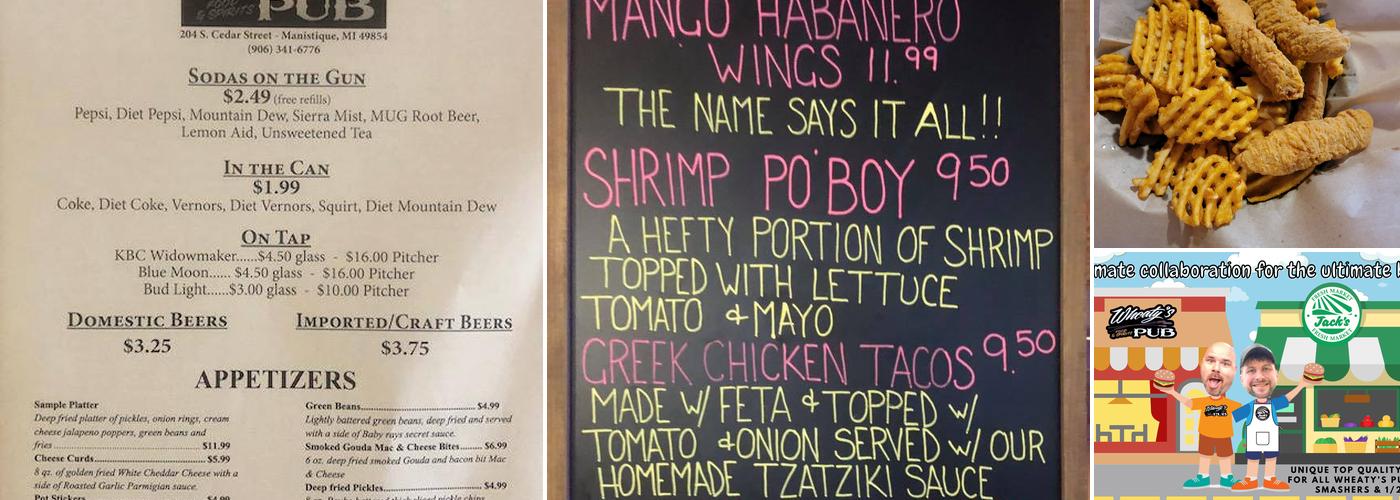 FOOD
& SPIRITS
PUB
204 S. Cedar Street - Manistique, MI 49854
(906) 341-6776
SODAS ON THE GUN
$2.49 (free refills)
Pepsi, Diet Pepsi, Mountain Dew, Sierra Mist, MUG Root Beer,
Lemon Aid, Unsweetened Tea
IN THE CAN
$1.99
Coke, Diet Coke, Vernors, Diet Vernors, Squirt, Diet Mountain Dew
ON TAP
KBC Widowmaker......$4.50 glass - $16.00 Pitcher
Blue Moon...... $4.50 glass - $16.00 Pitcher
Bud Light......$3.00 glass - $10.00 Pitcher
DOMESTIC BEERS
$3.25
IMPORTED/CRAFT BEERS
$3.75
APPETIZERS
Sample Platter
Deep fried platter of pickles, onion rings, cream
cheese jalapeno poppers, green beans and
fries $11.99
Cheese Curds $5.99
8 oz. of golden fried White Cheddar Cheese with a
side of Roasted Garlic Parmigian sauce.
Pot Stickers $4.99
Green Beans $4.99
Lightly battered green beans, deep fried and served
with a side of Baby rays secret sauce.
Smoked Gouda Mac & Cheese Bites $6.99
6 oz. deep fried smoked Gouda and bacon bit Mac
& Cheese
Deep fried Pickles $4.99
MANGO HABANERO
WINGS 11.99
THE NAME SAYS IT ALL!!
SHRIMP PO'BOY 9.50
A HEFTY PORTION OF SHRIMP
TOPPED WITH LETTUCE
TOMATO & MAYO
GREEK CHICKEN TACOS 9.50
MADE W/ FETA & TOPPED W/
TOMATO & ONION SERVED W/ OUR
HOMEMADE TZATZIKI SAUCE
mate collaboration for the ultimate
Wheaty's
PUB
FRESH MARKET
Jack's
FRESH MARKET
UNIQUE TOP QUALITY
FOR ALL WHEATY'S
SMASHERS & 1/